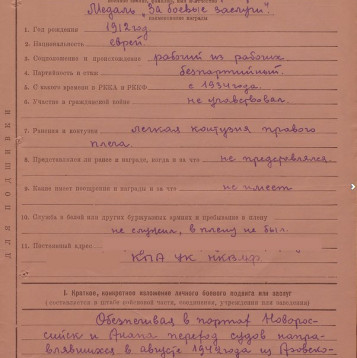 Медаль „За боевые заслуги".
наименование награды
1. Год рождения 1912 год.
2. Национальность еврей.
3. Соцположение и происхождение рабочий из рабочих.
4. Партийность и стаж беспартийный.
5. С какого времени в РККА и РККФ с 1934 года.
6. Участие в гражданской войне не участвовал.
7. Ранения и контузии легкая контузия правого
плеча.
8. Представлялся ли ранее к награде, когда и за что не представлялся.
9. Какие имеет поощрения и награды и за что не имеет
10. Служба в белой или других буржуазных армиях и пребывание в плену
не служил, в плену не был.
11. Постоянный адрес
ДЛЯ ПОДШИВКИ
I. Краткое, конкретное изложение личного боевого подвига или заслуг
(составляется в штабе войсковой части, соединения, учреждения или заведения)
Обеспечивая в портах Новорос-
сийск и Анапа переход судов напра-
влявшихся в августе 1942 года из Азовско-